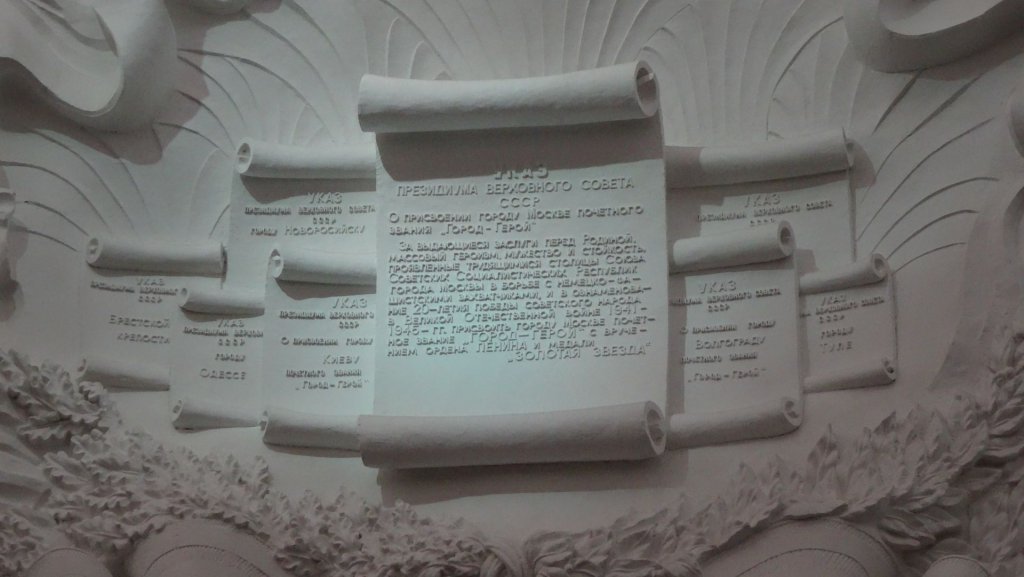 УКАЗ
ПРЕЗИДИУМА ВЕРХОВНОГО СОВЕТА
СССР
О ПРИСВОЕНИИ ГОРОДУ МОСКВЕ ПОЧЕТНОГО
ЗВАНИЯ „ГОРОД-ГЕРОЙ"
ЗА ВЫДАЮЩИЕСЯ ЗАСЛУГИ ПЕРЕД РОДИНОЙ,
МАССОВЫЙ ГЕРОИЗМ, МУЖЕСТВО И СТОЙКОСТЬ,
ПРОЯВЛЕННЫЕ ТРУДЯЩИМИСЯ СТОЛИЦЫ СОЮЗА
СОВЕТСКИХ СОЦИАЛИСТИЧЕСКИХ РЕСПУБЛИК
ГОРОДА МОСКВЫ В БОРЬБЕ С НЕМЕЦКО-ФА-
ШИСТСКИМИ ЗАХВАТЧИКАМИ, И В ОЗНАМЕНОВА-
НИЕ 20-ЛЕТИЯ ПОБЕДЫ СОВЕТСКОГО НАРОДА
В ВЕЛИКОЙ ОТЕЧЕСТВЕННОЙ ВОЙНЕ 1941-
1945- ГГ. ПРИСВОИТЬ ГОРОДУ МОСКВЕ ПОЧЕТ-
НОЕ ЗВАНИЕ „ГОРОД ГЕРОЙ" С ВРУЧЕ-
НИЕМ ОРДЕНА ЛЕНИНА И МЕДАЛИ
„ЗОЛОТАЯ ЗВЕЗДА"
УКАЗ
ПРЕЗИДИУМА ВЕРХОВНОГО СОВЕТА
СССР
ГОРОДУ НОВОРОССИЙСКУ
УКАЗ
ПРЕЗИДИУМА ВЕРХОВНОГО СОВЕТА
СССР
УКАЗ
СССР
БРЕСТСКОЙ
КРЕПОСТИ
УКАЗ
СССР
ГОРОДУ
ОДЕССЕ
УКАЗ
ПРЕЗИДИУМА ВЕРХОВНОГО
СССР
О ПРИСВОЕНИИ ГОРОДУ
КИЕВУ
ПОЧЕТНОГО ЗВАНИЯ
„ГОРОД-ГЕРОЙ"
УКАЗ
ВЕРХОВНОГО СОВЕТА
СССР
О ПРИСВОЕНИИ ГОРОДУ
ВОЛГОГРАДУ
ПОЧЕТНОГО ЗВАНИЯ
„ГОРОД-ГЕРОЙ"
УКАЗ
ВЕРХОВНОГО СОВЕТА
СССР
ГОРОДУ
ТУЛЕ